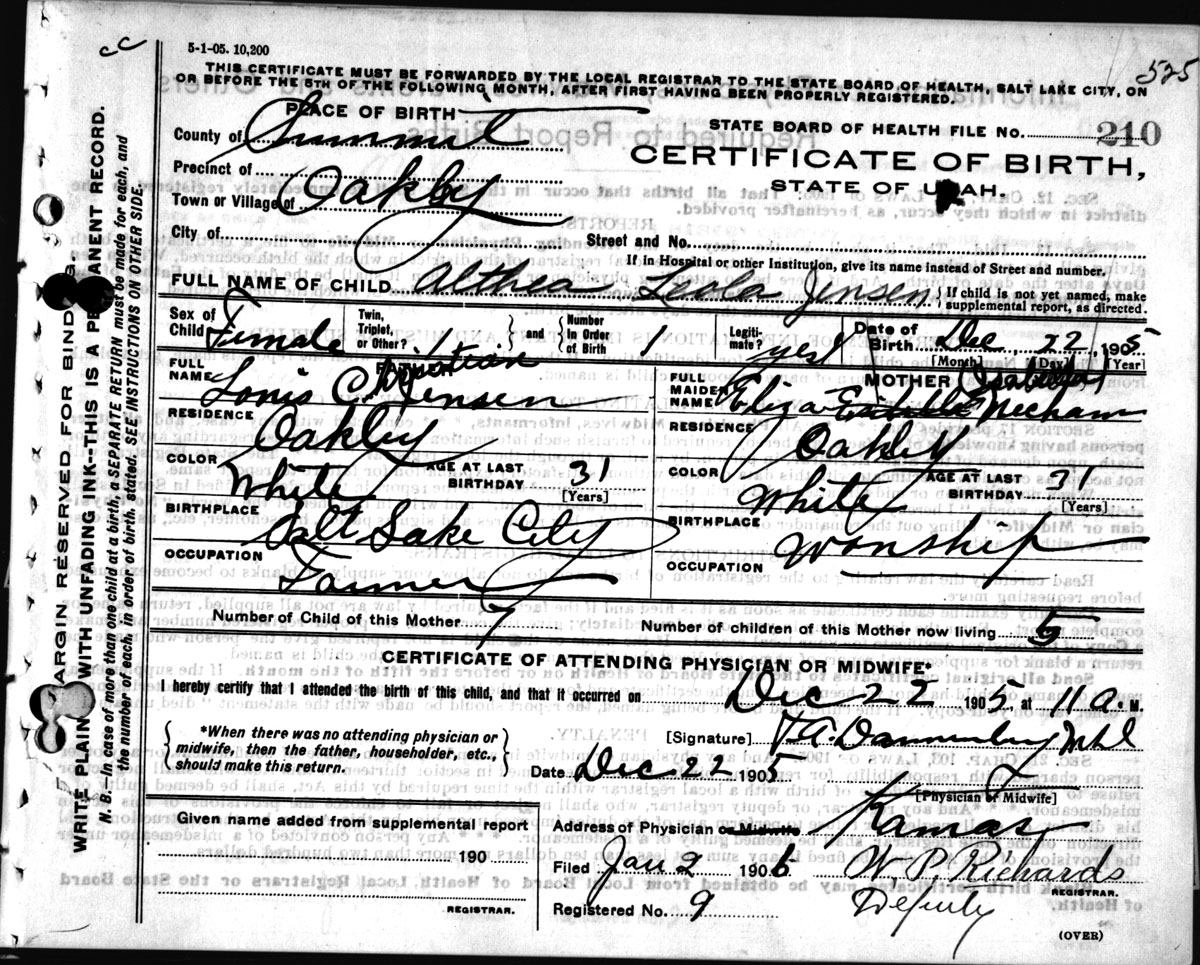 5-1-05. 10,200
cc
525
THIS CERTIFICATE MUST BE FORWARDED BY THE LOCAL REGISTRAR TO THE STATE BOARD OF HEALTH, SALT LAKE CITY, ON
OR BEFORE THE 5TH OF THE FOLLOWING MONTH, AFTER FIRST HAVING BEEN PROPERLY REGISTERED.
PLACE OF BIRTH
STATE BOARD OF HEALTH FILE NO. 210
County of Summit
CERTIFICATE OF BIRTH,
STATE OF UTAH.
Precinct of
Town or Village of Oakley
City of
Street and No.
If in Hospital or other Institution, give its name instead of Street and number.
FULL NAME OF CHILD Althea Leola Jensen { If child is not yet named, make
supplemental report, as directed.
Sex of Child Female
Twin, Triplet, or Other? 1 } and { Number in Order of Birth 1
Legitimate? yes
Date of Birth Dec, 22, 1905
[Month] [Day] [Year]
FATHER
FULL NAME Louis C. Jensen
RESIDENCE Oakley
COLOR White
AGE AT LAST BIRTHDAY 31
[Years]
BIRTHPLACE Salt Lake City
OCCUPATION Farmer
MOTHER
FULL MAIDEN NAME Eliza Mecham
RESIDENCE Oakley
COLOR White
AGE AT LAST BIRTHDAY 31
[Years]
BIRTHPLACE Wanship
OCCUPATION
Number of Child of this Mother 7
Number of children of this Mother now living 5
CERTIFICATE OF ATTENDING PHYSICIAN OR MIDWIFE*
I hereby certify that I attended the birth of this child, and that it occurred on Dec 22 1905, at 11 a. M.
{ *When there was no attending physician or
midwife, then the father, householder, etc.,
should make this return. }
[Signature]
Date Dec 22 1905
[Physician or Midwife]
Given name added from supplemental report
190
REGISTRAR.
Address of Physician or Midwife Kamas
Filed Jan 2 1906 W. P. Richards
REGISTRAR.
Registered No. 9 Deputy
(OVER)
MARGIN RESERVED FOR BINDING.
WRITE PLAINLY WITH UNFADING INK--THIS IS A PERMANENT RECORD.
N. B.--In case of more than one child at a birth, a SEPARATE RETURN must be made for each, and
the number of each, in order of birth, stated. SEE INSTRUCTIONS ON OTHER SIDE.